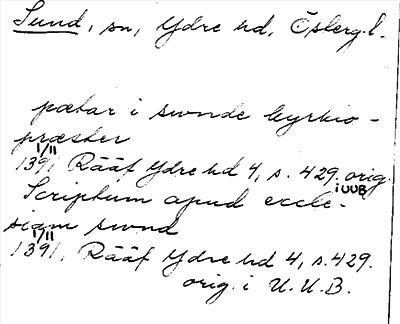 Sund, sn, Ydre hd, Österg.l.
pætar i swnde kyrkio-
præster
1/11
1391. Rääf Ydre hd 4, s. 429. orig.
i UUB
Scriptum apud eccle-
siam swnd
1/11
1391. Rääf Ydre hd 4, s. 429.
orig. i U.U.B.